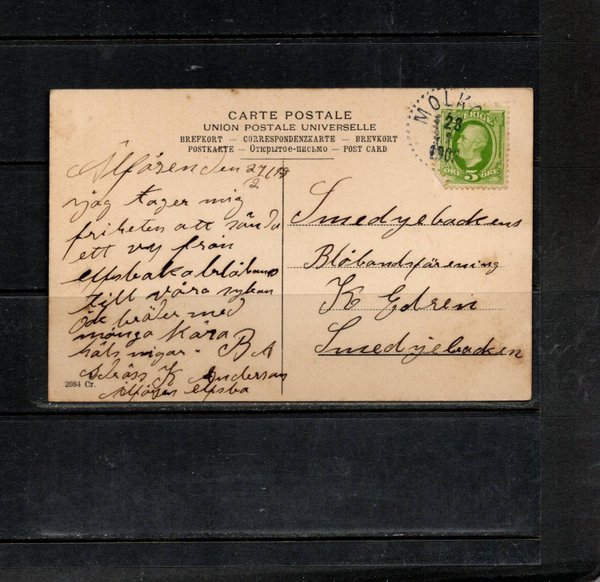 CARTE POSTALE
UNION POSTALE UNIVERSELLE
BREFKORT — CORRESPONDENZKARTE — BREVKORT
POSTKARTE — Открытое-письмо — POST CARD
MOLK
28
SVERIGE
5
ÖRE ÖRE
Älfåsen den 27/
2
jag tager mig
friheten att sända
ett vy från
till våra sykon
Ock bråder med
många kära
hälsningar. B A
Adräss K Anderson
Älfåsen
2084 Cr.
Smedjebackens
Blåbandsförening
K Edren
Smedjebacken